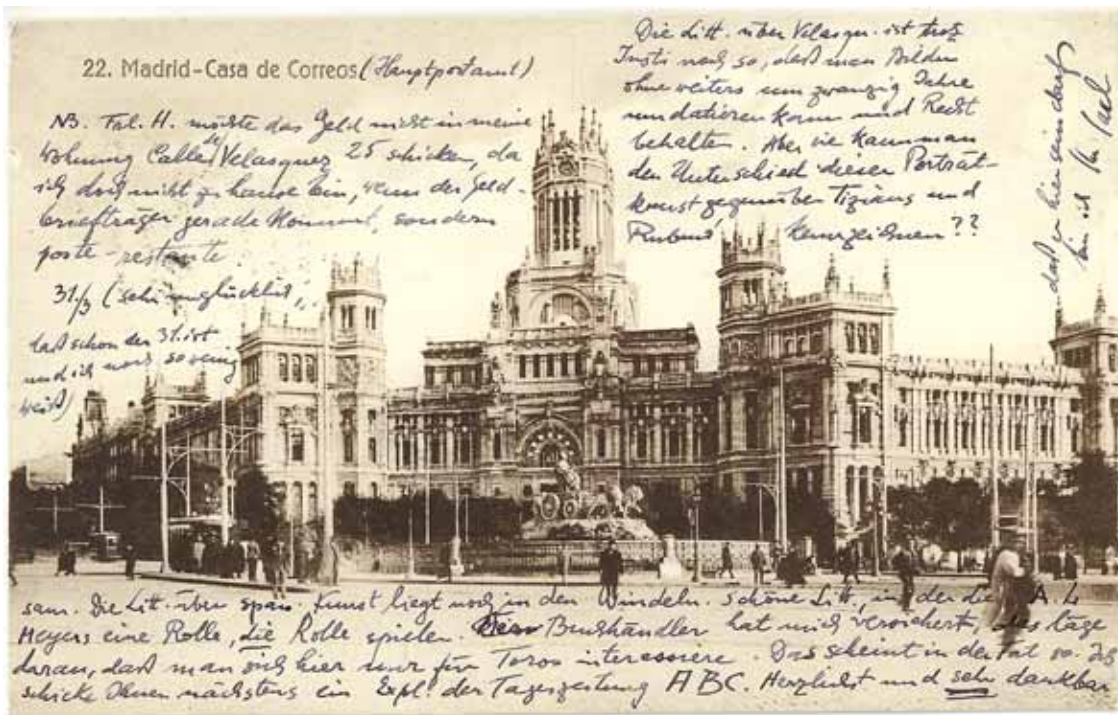 22. Madrid-Casa de Correos (Hauptpostamt)
NB. Frl. H. möchte das Geld nicht in meine
Wohnung Calle de Velasquez 25 schicken, da
ich dort nicht zu hause bin, wenn der Geld-
briefträger gerade kommt, sondern
poste-restante.
31/3 (sehr unglücklich,
daß schon der 31. ist
und ich noch so wenig
weiß)
Die Litt. über Velasqu. ist trotz
Justi noch so, daß man Bilder
ohne weiters um zwanzig Jahre
umdatieren kann und Recht
behalten. Aber wie kann man
den Unterschied dieser Porträt-
kunst gegenüber Tizians und
Rubens' kennzeichnen??
daß ich hier sein darf
bin ich Ihr
sam. Die Litt. über span. Kunst liegt noch in den Windeln. Schöne Litt, in der die A. L.
Meyers eine Rolle, die Rolle spielen. Buchhändler hat mich versichert, das läge
daran, daß man sich hier nur für Toros interessiere. Das scheint in der Tat so. Ich
schicke Ihnen nächstens ein Expl. der Tageszeitung ABC. Herzlichst und sehr dankbar